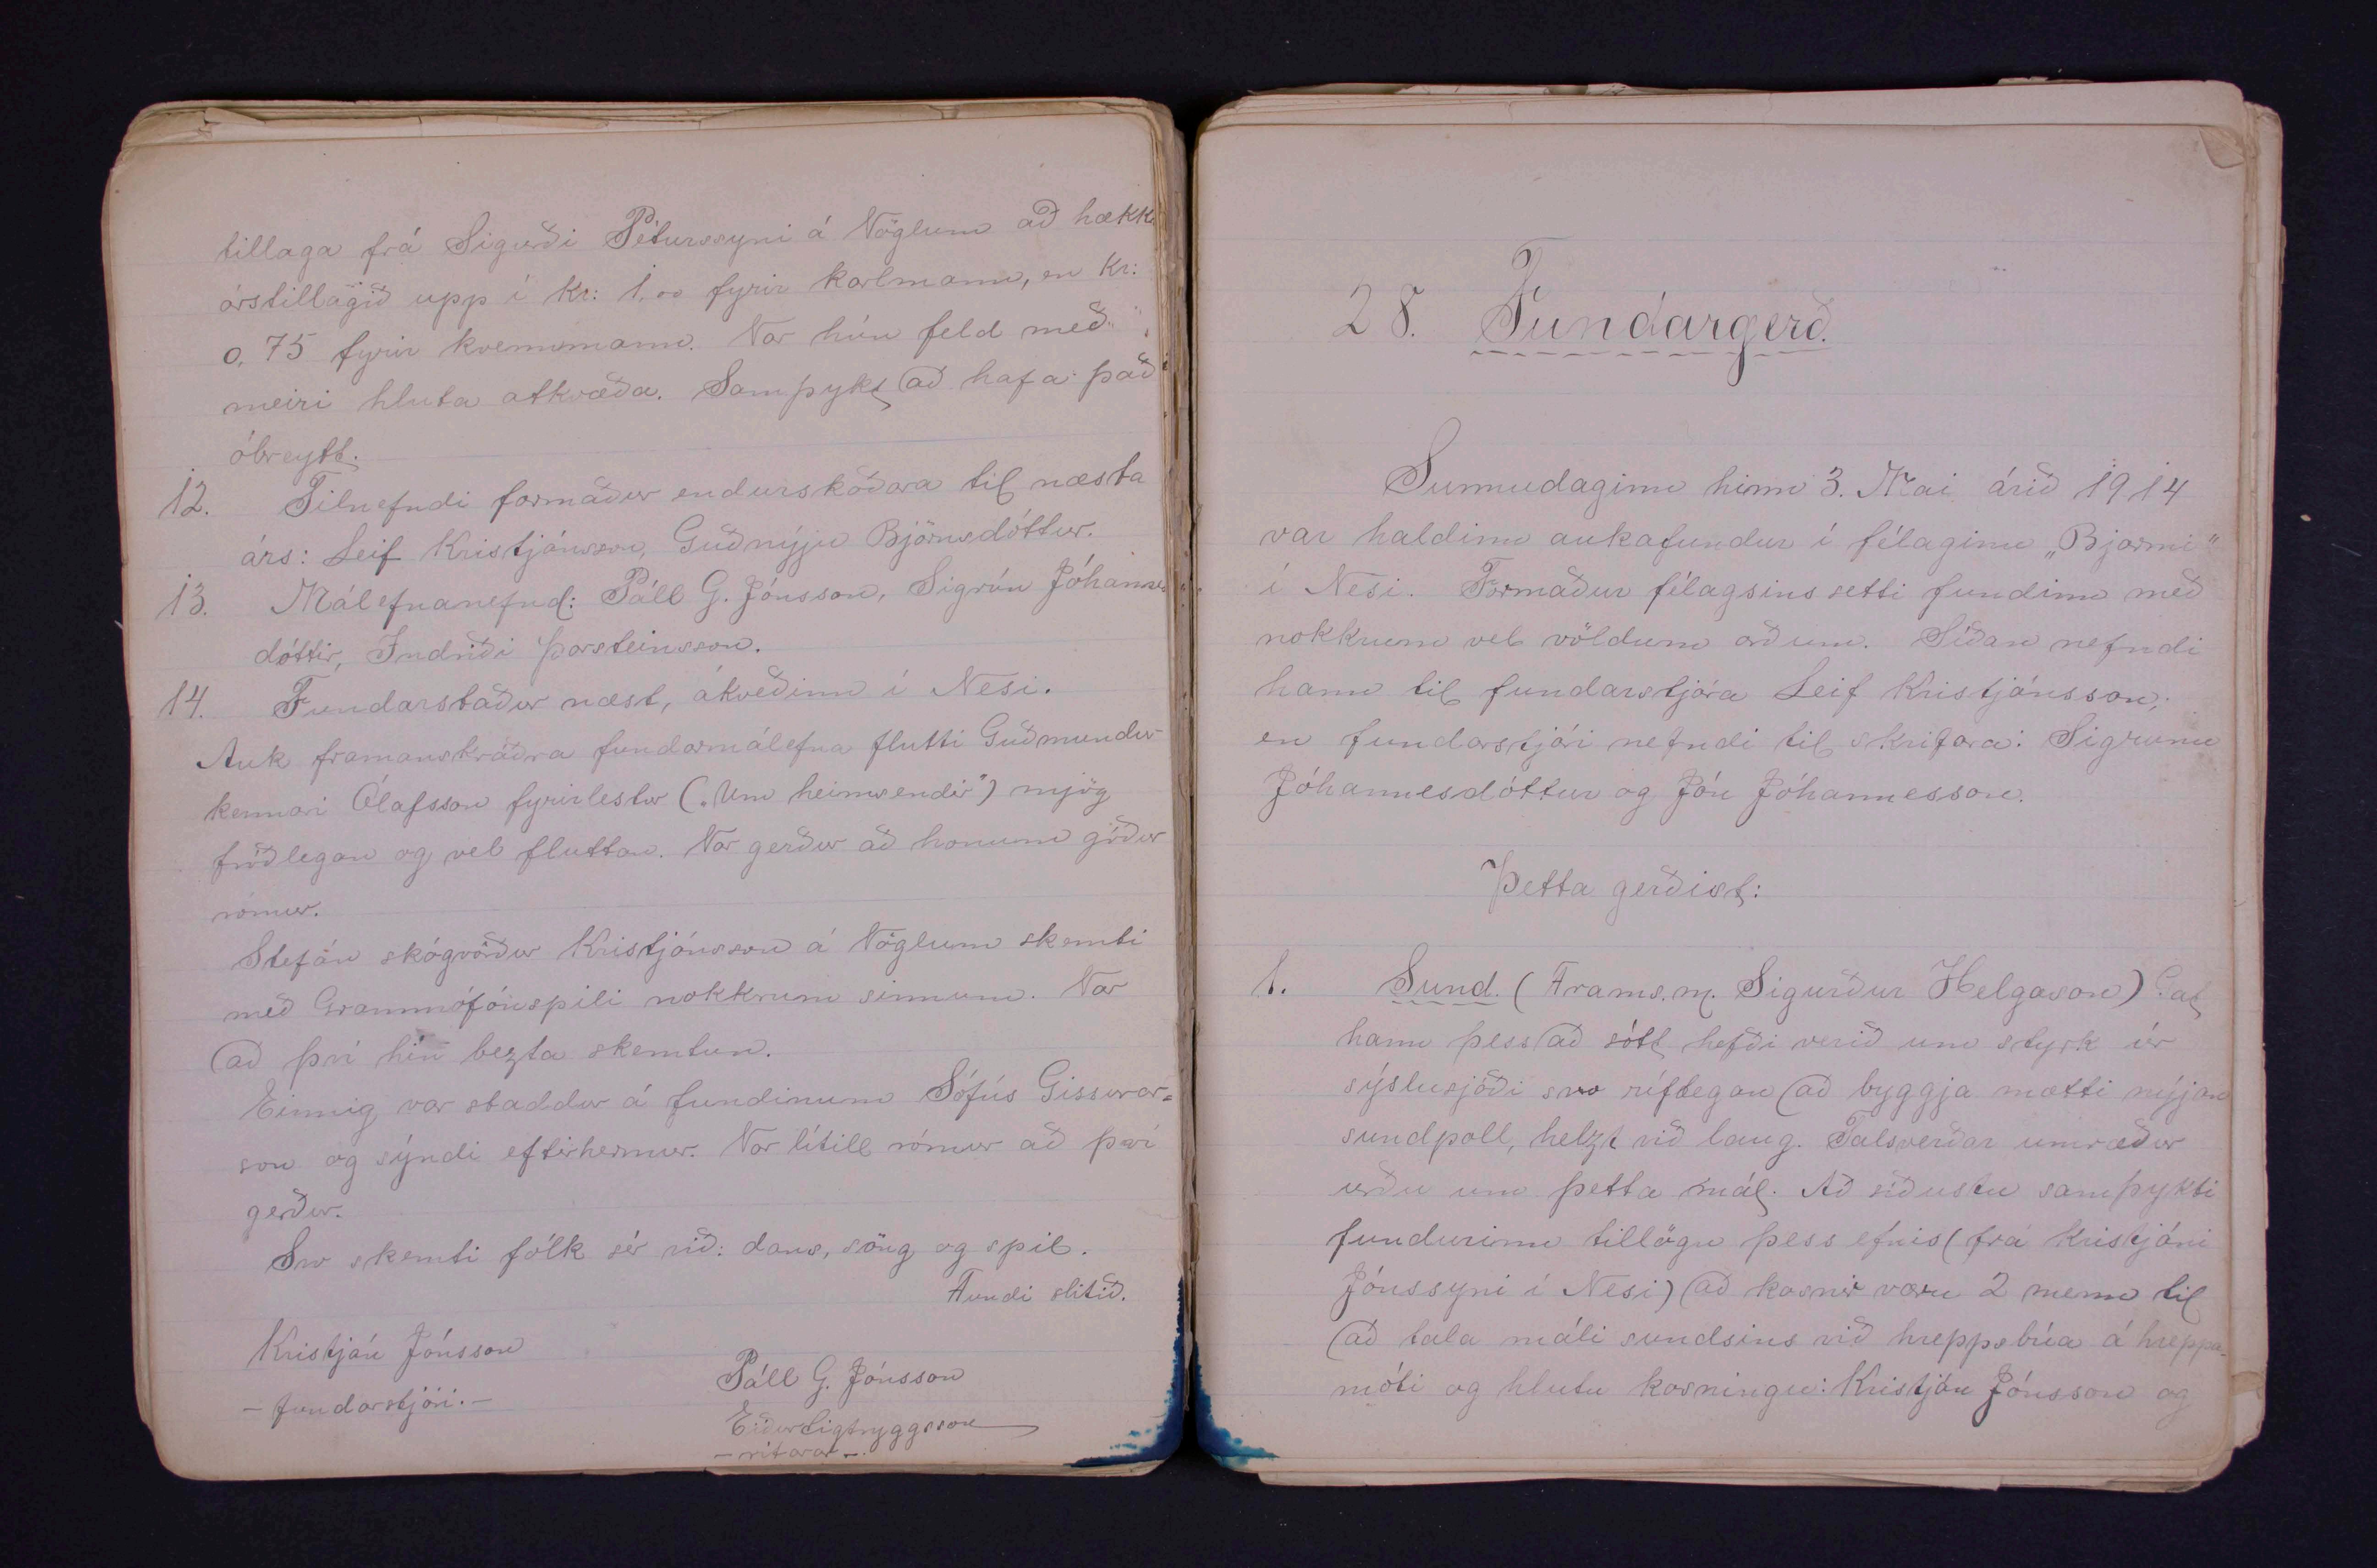 tillaga frá Sigurði Péturssyni á Vöglum að hækk
árstillagið upp í kr: 1,00 fyrir karlmann, en kr:
0,75 fyrir kvennmann. Var hún feld með
meiri hluta atkvæða. Samþykt að hafa það
óbreytt.
12. Tilnefndi formaður endurskoðara til næsta
árs: Leif Kristjánsson, Guðnýju Björnsdóttur.
13. Málefnanefnd: Páll G. Jónsson, Sigrún Jóhannes
dóttir, Indriði Þorsteinsson.
14. Fundarstaður næst, ákveðinn í Nesi.
Auk framanskráðra fundarmálefna flutti Guðmundur
kennari Ólafsson fyrirlestur („Um heimsendir") mjög
fróðlegan og vel fluttan. Var gerður að honum góður
rómur.
Stefán skógvörður Kristjánsson á Vöglum skemti
með Grammófónspili nokkrum sinnum. Var
að því hin bezta skemtun.
Einnig var staddur á fundinum Sófús Gissurar=
son og sýndi eftirhermur. Var lítill rómur að því
gerður.
Svo skemti fólk sér við: dans, söng og spil.
Fundi slitið.
Kristján Jónsson
- fundarstjóri. -
Páll G. Jónsson
Eiður Sigtryggsson
- ritarar -
28. Fundargerð.
Sunnudaginn hinn 3. Mai árið 1914
var haldinn aukafundur í félaginu „Bjarmi"
í Nesi. Formaður félagsins setti fundinn með
nokkrum vel völdum orðum. Síðan nefndi
hann til fundarstjóra Leif Kristjánsson;
en fundarstjóri nefndi til skrifara: Sigrunu
Jóhannesdóttur og Jón Jóhannesson.
Þetta gerðist:
1. Sund. (Frams.m. Sigurður Helgason) Gat
hann þess að sótt hefði verið um styrk úr
sýslusjóði svo ríflegan að byggja mætti nýjan
sundpoll, helzt við laug. Talsverðar umræður
urðu um þetta mál. Að síðustu samþykti
fundurinn tillögu þess efnis (frá Kristjáni
Jónssyni í Nesi) að kosnir væru 2 menn til
að tala máli sundsins við hreppsbúa á hreppa-
móti og hlutu kosningu: Kristján Jónsson og